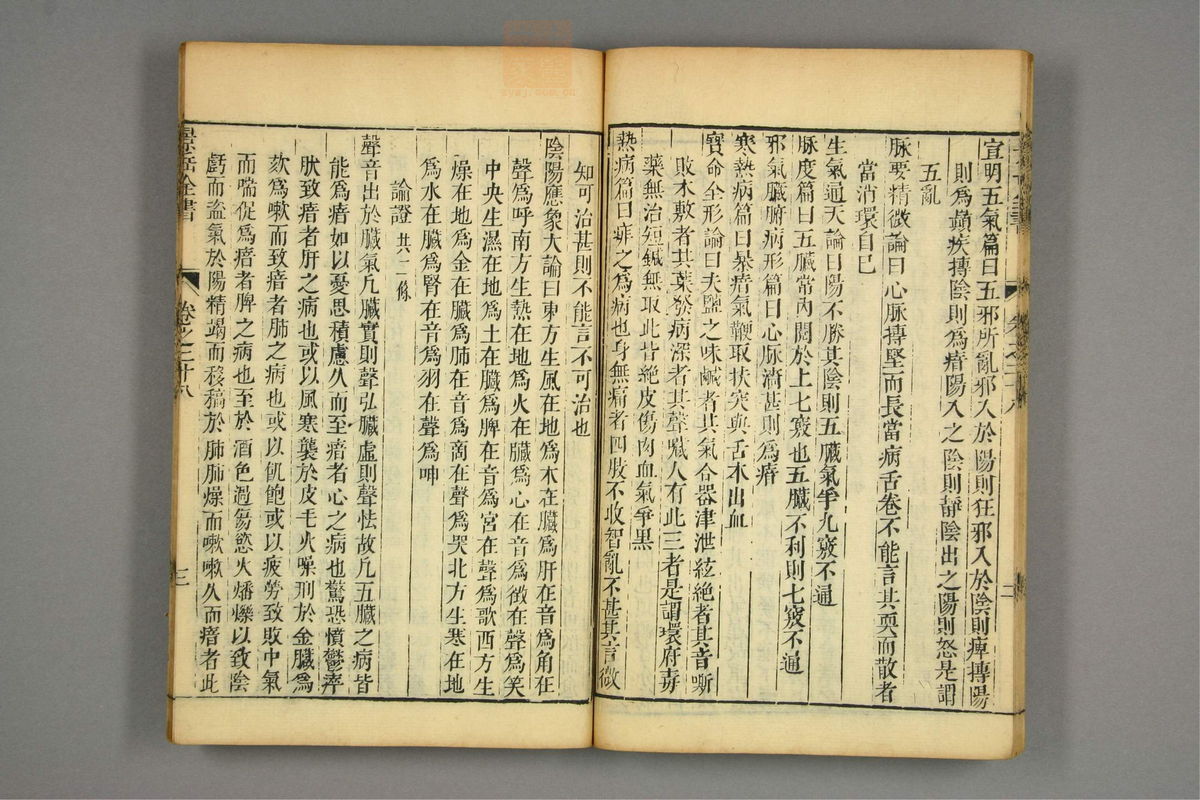 宣明五氣篇曰五邪所亂邪入於陽則狂邪入於陰則痺搏陽
則爲巔疾搏陰則爲瘖陽入之陰則靜陰出之陽則怒是謂
五亂
脉要精微論曰心脉搏堅而長當病舌卷不能言其耎而散者
當消環自已
生氣通天論曰陽不勝其陰則五臟氣爭九竅不通
脉度篇曰五臟常內閱於上七竅也五臟不利則七竅不通
邪氣臟腑病形篇曰心脉濇甚則爲瘖
寒熱病篇曰暴瘖氣鞕取扶突與舌本出血
寶命全形論曰夫鹽之味鹹者其氣令器津泄絃絶者其音嘶
敗木敷者其葉發病深者其聲噦人有此三者是謂壞府毒
藥無治短鍼無取此皆絶皮傷肉血氣爭黑
熱病篇曰痱之爲病也身無痛者四肢不收智亂不甚其言微
知可治甚則不能言不可治也
陰陽應象大論曰東方生風在地爲木在臟爲肝在音爲角在
聲爲呼南方生熱在地爲火在臟爲心在音爲徵在聲爲笑
中央生濕在地爲土在臟爲脾在音爲宮在聲爲歌西方生
燥在地爲金在臟爲肺在音爲商在聲爲哭北方生寒在地
爲水在臟爲腎在音爲羽在聲爲呻
論證 共二條
聲音出於臟氣凡臟實則聲弘臟虛則聲怯故凡五臟之病皆
能爲瘖如以憂思積慮久而至瘖者心之病也驚恐憤鬱卒
然致瘖者肝之病也或以風寒襲於皮毛火燥刑於金臟爲
欬爲嗽而致瘖者肺之病也或以飢飽或以疲勞致敗中氣
而喘促爲瘖者脾之病也至於酒色過傷慾火燔爍以致陰
虧而盜氣於陽精竭而移槁於肺肺燥而嗽嗽久而瘖者此
景岳全書
卷之二十八
三